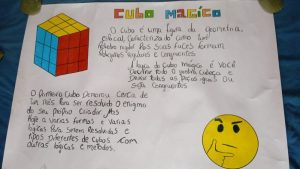 CUBO MAGICO
O cubo é uma figura da geometria
espacial, caracterizada como um
Poliedro regular Pois suas faces formam
Poligonos regulares e congruentes
O logica do cubo magico é VOCÊ
Decifrar todo o quebra cabeça e
Deixar todas as peças iguais ou
Seja congruentes
O primeiro cubo Demorou cerca de
um mês Para ser resolvido O enigma
do seu próprio criador. Mas
Hoje a varias formas e varias
lógicas Para serem Resolvidas e
tipos Diferentes de cubos com
outras lógicas e metodos.